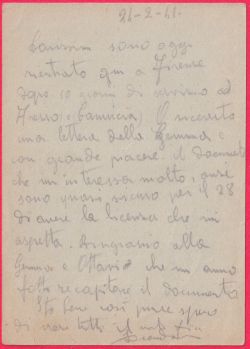 21-2-41.
Carissimi sono oggi
rientrato qui a Firenze
dopo 10 giorni di servizio ad
Arezzo Ho ricevuto
una lettera della Gemma e
con grande piacere il documento
che mi interessa molto, anzi
sono quasi sicuro per il 28
di avere la licenza che mi
aspetta. Ringrazio alla
Gemma e Ottavio che mi anno
fatto recapitare il documento
Sto bene così pure spero
di voi tutti